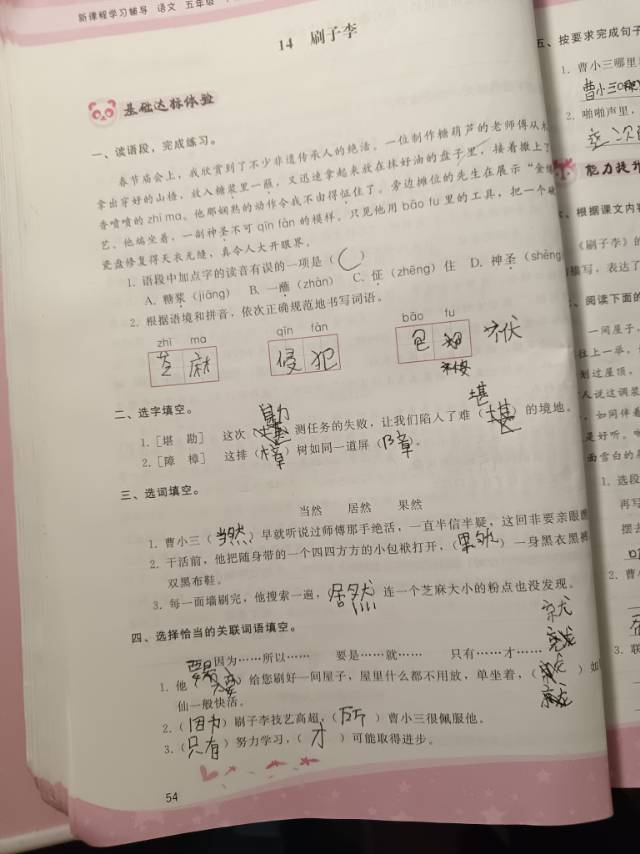 新课程学习辅导 语文 五年级
14 刷子李
基础达标体验
一、读语段，完成练习。
春节庙会上，我欣赏到了不少非遗传承人的绝活。一位制作糖葫芦的老师傅从木
拿出穿好的山楂，放入糖浆里一蘸，又迅速拿起来放在抹好油的盘子里，接着撒上了
香喷喷的 zhī ma。他那娴熟的动作令我不由得怔住了。旁边摊位的先生在展示“金
艺。他端坐着，一副神圣不可 qīn fàn 的模样。只见他用 bāo fu 里的工具，把一个破
瓷盘修复得天衣无缝，真令人大开眼界。
1. 语段中加点字的读音有误的一项是（ C ）
A. 糖浆（jiāng） B. 一蘸（zhàn） C. 怔（zhēng）住 D. 神圣（shèng
2. 根据语境和拼音，依次正确规范地书写词语。
zhī ma qīn fàn bāo fu
芝 麻 侵 犯 包
二、选字填空。
1. [堪 勘] 这次（勘）测任务的失败，让我们陷入了难（堪）的境地。
2. [障 樟] 这排（樟）树如同一道屏（障）。
三、选词填空。
当然 居然 果然
1. 曹小三（当然）早就听说过师傅那手绝活，一直半信半疑，这回非要亲眼瞧
2. 干活前，他把随身带的一个四四方方的小包袱打开，（果然）一身黑衣黑裤
双黑布鞋。
3. 每一面墙刷完，他搜索一遍，居然 连一个芝麻大小的粉点也没发现。
四、选择恰当的关联词语填空。
因为……所以…… 要是……就…… 只有……才……
就
1. 他（要是）给您刷好一间屋子，屋里什么都不用放，单坐着，（ ）如
仙一般快活。
2.（因为）刷子李技艺高超，（所 ）曹小三很佩服他。
3.（只有）努力学习，（ 才 ）可能取得进步。
54
五、按要求完成句子
1. 曹小三哪里
曹小三
2. 啪啪声里，
这次
能力提升
根据课文内容
《刷子李》的
描写，表达了
阅读下面的
一间屋子，
往上一举，
划过屋顶，
人说这调浆
如同伴着
是好听。
面雪白的
1. 选段
再写
摆去
2. 曹小
3. 联